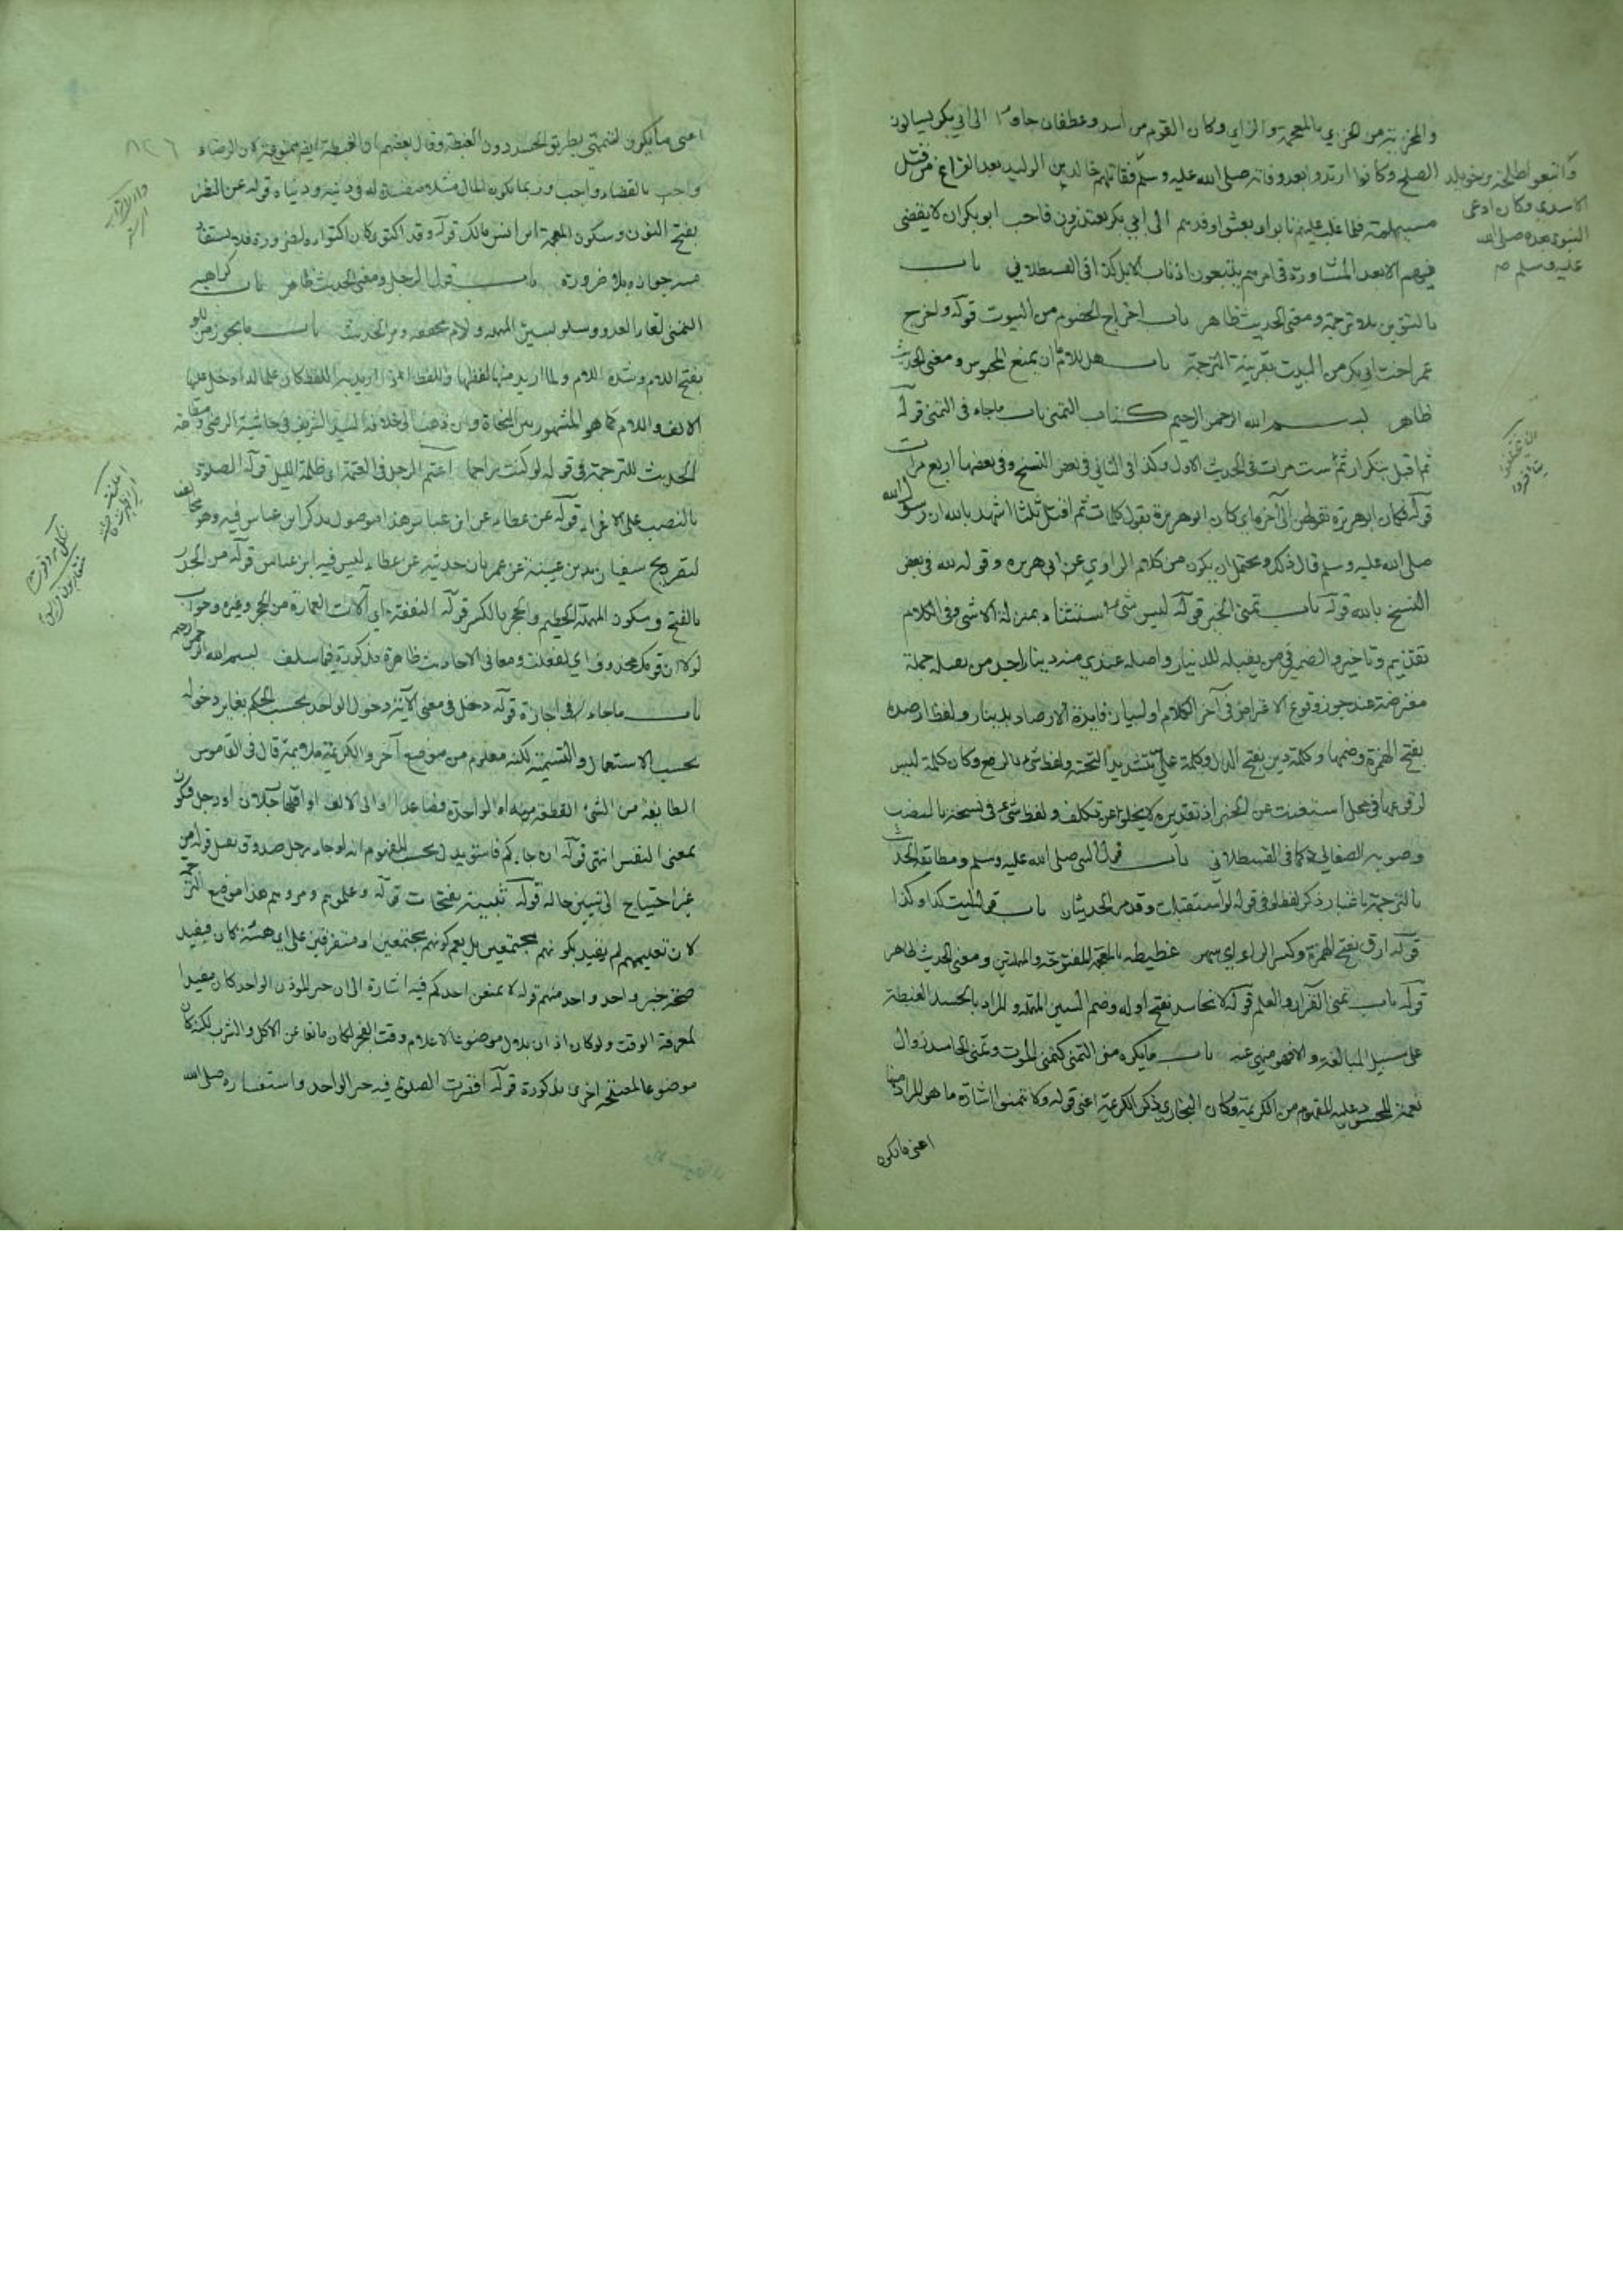 والمخزية من الخزي بالمعجمة والزاي وكان القوم من أسد وغطفان جاوا الى ابي بكر يسالون
الصلح وكانوا ارتدوا بعد وفاته صلى الله عليه وسلم فقاتلهم خالد بن الوليد بعد الفراغ من قتل
مسيلمة فلما غلب عليهم تابوا وبعثوا وفدهم الى ابي بكر يعتذرون فاحب ابو بكر ان لا يقضي
فيهم الا بعد المشاورة في امرهم يتبعون اذناب الابل كذا في القسطلاني باب
بالتنوين بلا ترجمة ومعنى الحديث ظاهر باب اخراج الخصوم من البيوت قوله واخرج
عمر اخت ابي بكر من البيت بقرينة الترجمة باب هل للامام ان يمنع المجرمين ومعنى الحديث
ظاهر بسم الله الرحمن الرحيم كتاب التمني باب ماجاء في التمني قوله
ثم اقتل بتكرار ثم ست مرات في الحديث الاول وكذا في الثاني في بعض النسخ وفي بعضها اربع مرات
قوله فكان ابو هريرة يقولهن الى آخره اي كان ابو هريرة يقول كلمات ثم اقتل ثلثا اشهد بالله ان رسول الله
صلى الله عليه وسلم قال ذلك ويحتمل ان يكون من كلام الراوي عن ابي هريرة وقوله لله في بعض
النسخ بالله قوله باب تمني الخير قوله ليس شئ استثناء بمنزلة الا شئ وفي الكلام
تقديم وتاخير والضمير في من يقبله للدينار واصله عندي منه دينار اجد من يقبله جملة
معترضة عند من جوز وقوع الاعتراض في آخر الكلام او لبيان فايدة الارصاد بدينار ولفظ ارصده
بفتح الهمزة وضمها وكلمة دين بفتح الدال وكلمة علي بتشديد التحتية ولفظ شئ بالرفع وكان كلمة ليس
لوقوعها في محل استغنت عن الخبر اذ تقديره لا يخلو عن تكلف ولفظ شئ في نسخة بالنصب
وصوبه الصغاني كما في القسطلاني باب قول النبي صلى الله عليه وسلم ومطابقة الحديث
بالترجمة باعتبار ذكر لفظ لو في قوله لو استقبلت وقد مر الحديثان باب قوله ليت كذا وكذا
قوله ارق بفتح الهمزة وكسر الراء اي سهر غطيطه بالمعجمة المفتوحة والمهملتين ومعنى الحديث ظاهر
قوله باب تمني القرآن والعلم قوله لا تحاسد بفتح اوله وضم السين المهملة والمراد بالحسد الغبطة
على سبيل المبالغة والا فهو منهي عنه باب مايكره من التمني كتمني الموت وتمني الحاسد زوال
نعمة المحسود عليه المفهوم من الكريمة وكان البخاري ذكر الكريمة اعني قوله ولا تتمنوا اشارة ما هو المراد منها
اعني ما يكره
واتبعوا طلحة بن خويلد
الاسدي وكان ادعى
النبوة بعده صلى الله
عليه وسلم
اعني مايكون لتمني بطريق الحسد دون الغبطة وقال بعضهم ان الغبطة ايضا ممنوعة لان الرضاء
واجب بالقضاء واجب وربما يكون المال مثله مفسدة له في دينه ودنياه قوله عن النضر
بفتح النون وسكون المعجمة ابن انس بن مالك قوله وقد اكتوى كان اكتواءه لضرورة فلا يستفاد
منه جوازه بلا ضرورة باب قول الرجل ومعنى الحديث ظاهر باب كراهية
التمني لقاء العدو وسلوا بسين المهملة ولام مخففة ومر الحديث باب مايجوز من اللو
بفتح اللام وشدة اللام
الالف واللام كما هو المشهور بين النحاة ومن ذهب الى خلافه السيد الشريف في حاشية الرضى ومطابقة
الحديث للترجمة في قوله لو كنت راجما اعتم الرجل في العتمة اي ظلمة الليل قوله الصلاة
بالنصب على الاغراء قوله عن عطاء عن ابن عباس هذا موصول بذكر ابن عباس فيه وهو مخالف
لتصريح سفيان بن عيينة عن عمر بان حديثه عن عطاء ليس فيه ابن عباس قوله من الجدر
بالفتح وسكون المهملة الحطيم والحجر بالكسر قوله النفقة اي آلات العمارة من الحجر وغيره وجواب
لولا ان قومك محذوف اي لفعلت ومعاني الاحاديث ظاهرة مذكورة فيما سلف بسم الله الرحمن الرحيم
باب ماجاء في اجازة قوله دخل في معنى الآية دخول الواحد بحسب الحكم يغاير دخوله
بحسب الاستعمال والتسمية لكنه معلوم من موضع آخر والكريمة ملايمة قال في القاموس
الطايفة من الشئ القطعة منه او الواحدة فصاعدا او الى الالف او اقلها رجلان او رجل فيكون
بمعنى النفس انتهى قوله ان جاءكم فاسق يدل بحسب المفهوم انه لو جاء رجل صدوق يقبل قوله من
غير احتياج الى تبين حاله قوله شببة بفتحات قوله وعلموهم ومروهم هذا موضع الترجمة
لان تعليمهم لم يقيد بكونهم مجتمعين بل يعم كونهم مجتمعين او متفرقين على اي هيئة كان فيفيد
صحة خبر واحد واحد منهم قوله لا يمنعن احدكم فيه اشارة الى ان خبر المؤذن الواحد كان مفيدا
لمعرفة الوقت ولو كان اذان بلال موضوعا لاعلام وقت الفجر لكان مانعا عن الاكل والشرب لكنه كان
موضوعا لمصلحة اخرى مذكورة قوله اقصرت الصلوة فيه خبر الواحد واستفساره صلى الله